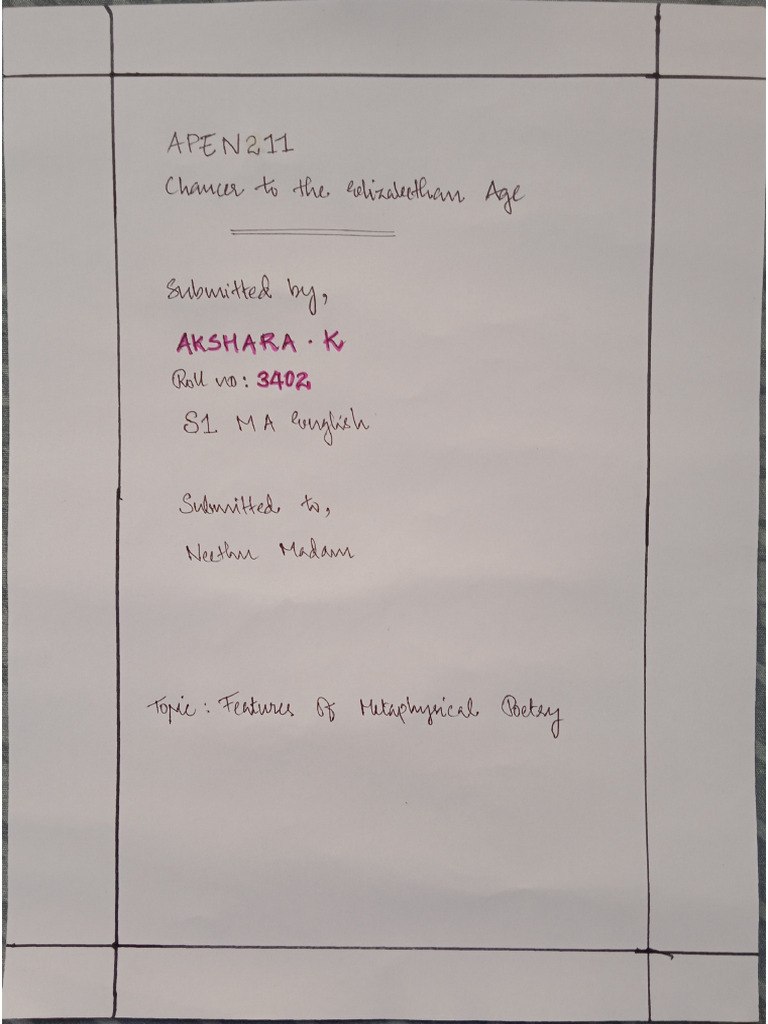 APEN211
Chaucer to the Elizabethan Age
Submitted by,
AKSHARA . K
Roll no: 3402
S1 MA English
Submitted to,
Neethu Madam
Topic: Features Of Metaphysical Poetry